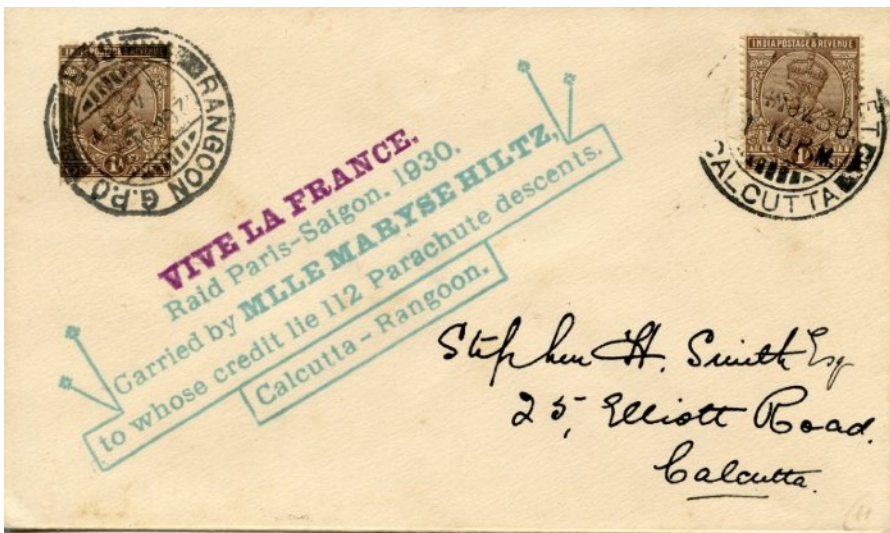 RANGOON G.P.O.
INDIA POSTAGE & REVENUE
CALCUTTA
VIVE LA FRANCE.
Raid Paris-Saigon. 1930.
Carried by MLLE MARYSE HILTZ,
to whose credit lie 112 Parachute descents.
Calcutta - Rangoon.
Stephen H. Smith Esq
25, Elliott Road.
Calcutta.